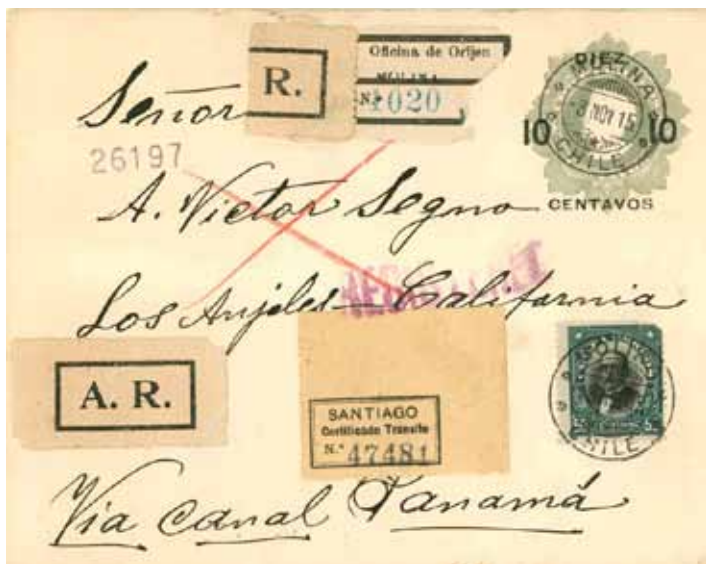 R.
Oficina de Orijen
MOLINA
N.º 1020
DIEZ
MOLINA
NOV 15
CHILE
10 10
CENTAVOS
Señor
26197
A. Victor Segno
Los Anjeles California
A. R.
SANTIAGO
Certificado Transito
N.º 47481
CHILE
Via Canal Panamá